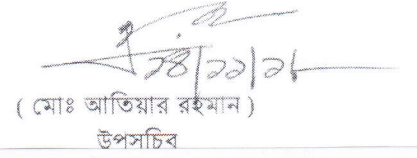 ১৪/১১/১৮
( মোঃ আতিয়ার রহমান )
উপসচিব